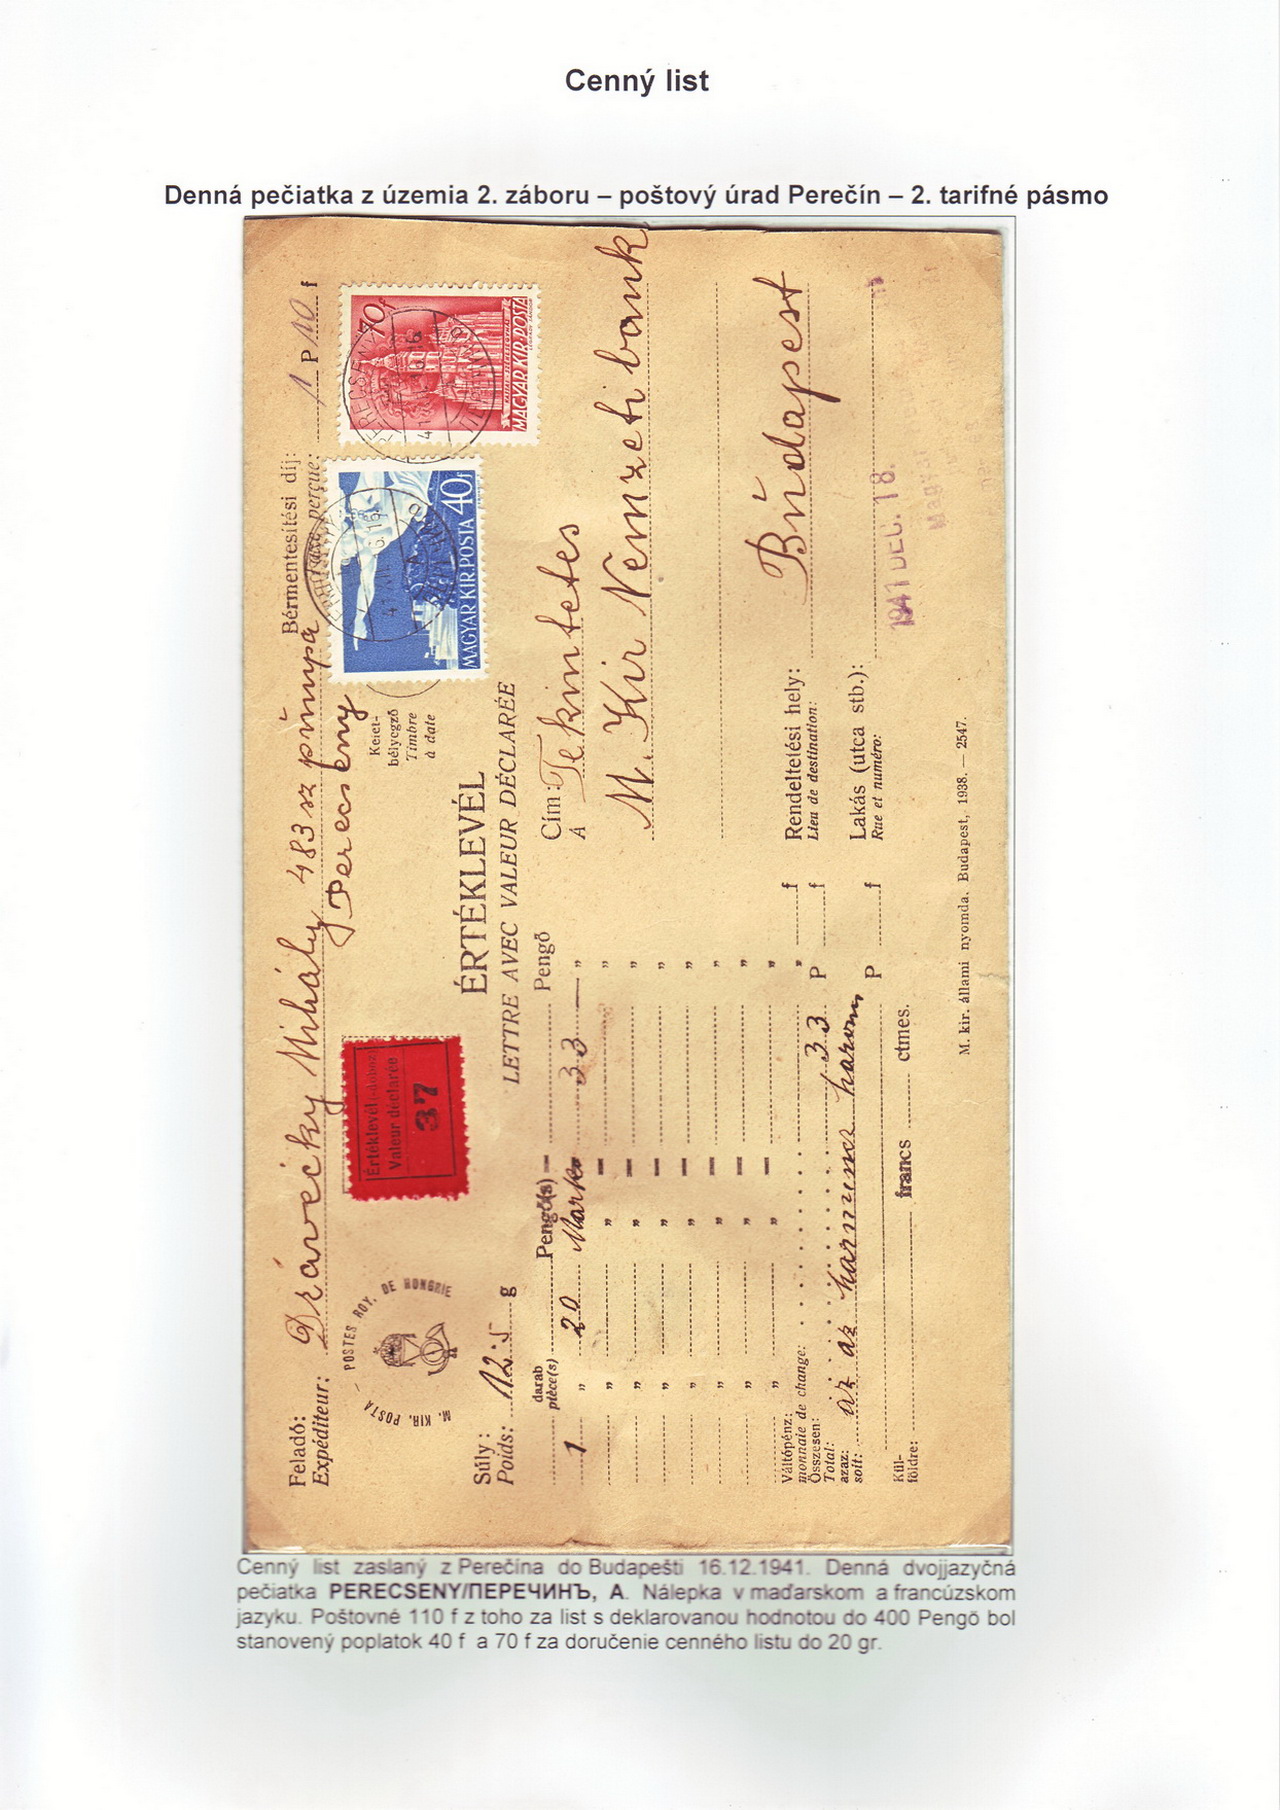 Cenný list
Denná pečiatka z územia 2. záboru – poštový úrad Perečín – 2. tarifné pásmo
Feladó: Drávecky Mihály 483 sz
Expéditeur:
Perecseny
Bérmentesítési díj:
1 P 10 f
70f
MAGYAR KIR. POSTA
40f
MAGYAR KIR. POSTA
Kelet-
bélyegző
Timbre
à date
POSTES ROY. DE HONGRIE
M. KIR. POSTA
Értéklevél (-doboz)
Valeur déclarée
37
ÉRTÉKLEVÉL
LETTRE AVEC VALEUR DÉCLARÉE
Súly: 12.5 g
Poids:
darab
pièce(s)
Pengő(s)
Pengő
1 " 20 33 — "
Váltópénz:
monnaie de change:
Összesen: 33 P f
Total:
azaz: az az harmincz három P f
soit:
Kül-
földre: francs ctmes.
Cím: Tekintetes
À
M. Kir Nemzeti bank
Rendeltetési hely: Budapest
Lieu de destination:
Lakás (utca stb.):
Rue et numéro:
1941 DEC. 18.
M. kir. állami nyomda. Budapest, 1938. — 2547.
Cenný list zaslaný z Perečína do Budapešti 16.12.1941. Denná dvojjazyčná
pečiatka PERECSENY/ПЕРЕЧИНЪ, A. Nálepka v maďarskom a francúzskom
jazyku. Poštovné 110 f z toho za list s deklarovanou hodnotou do 400 Pengö bol
stanovený poplatok 40 f a 70 f za doručenie cenného listu do 20 gr.